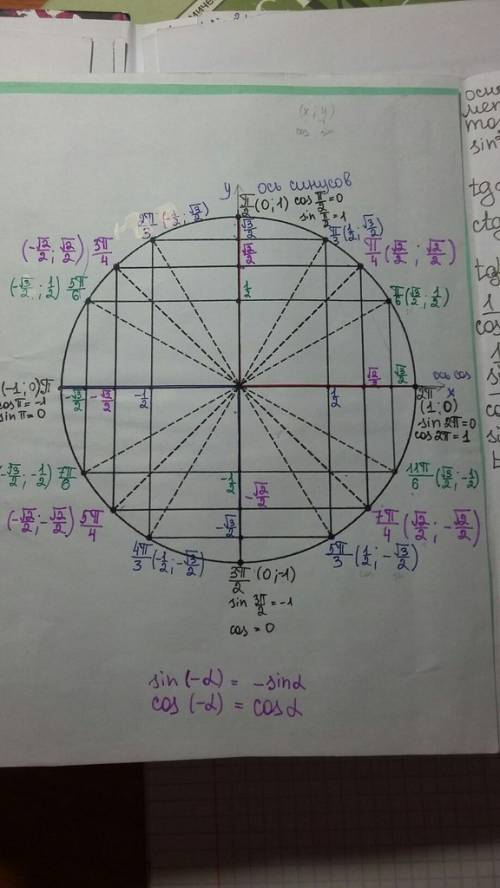 (x; y)
cos sin
y ось синусов
π/2 (0; 1) cos π/2 = 0
sin π/2 = 1
2π/3 (-1/2; √3/2)
√3/2
π/3 (1/2; √3/2)
(-√2/2; √2/2) 3π/4
√2/2
π/4 (√2/2; √2/2)
(-√3/2; 1/2) 5π/6
1/2
π/6 (√3/2; 1/2)
ось cos
(-1; 0) π
-√3/2 -√2/2 -1/2 1/2 √2/2 √3/2 2π x
cos π = -1
sin π = 0
(1; 0)
sin 2π = 0
cos 2π = 1
-√3/2; -1/2) 7π/6
-1/2
11π/6 (√3/2; -1/2)
-√2/2
(-√2/2; -√2/2) 5π/4
7π/4 (√2/2; -√2/2)
-√3/2
4π/3 (-1/2; -√3/2)
5π/3 (1/2; -√3/2)
3π/2 (0; -1)
sin 3π/2 = -1
cos = 0
sin(-α) = -sinα
cos(-α) = cosα
sin
tg
ctg
tg
1
cos